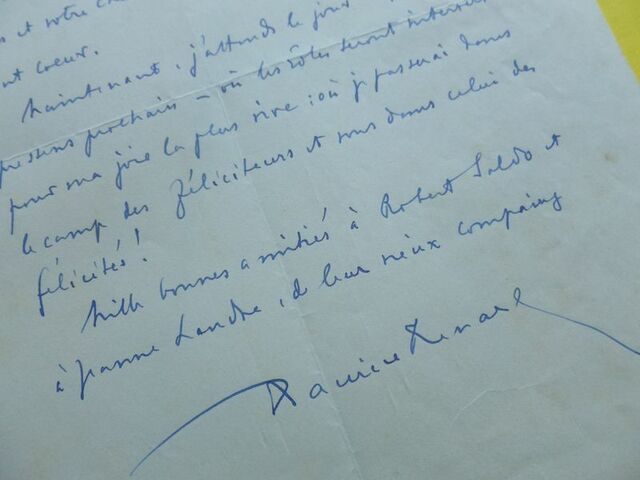 et votre
cœur.
Maintenant, j'attends le jour
prochain – où les rôles seront
pour ma joie la plus vive : où je passerai dans
le camp des féliciteurs et vous dans celui des
félicités !
Mille bonnes amitiés à Robert Saldo et
à Jeanne Landre, de leur vieux compaing
Maurice Renard